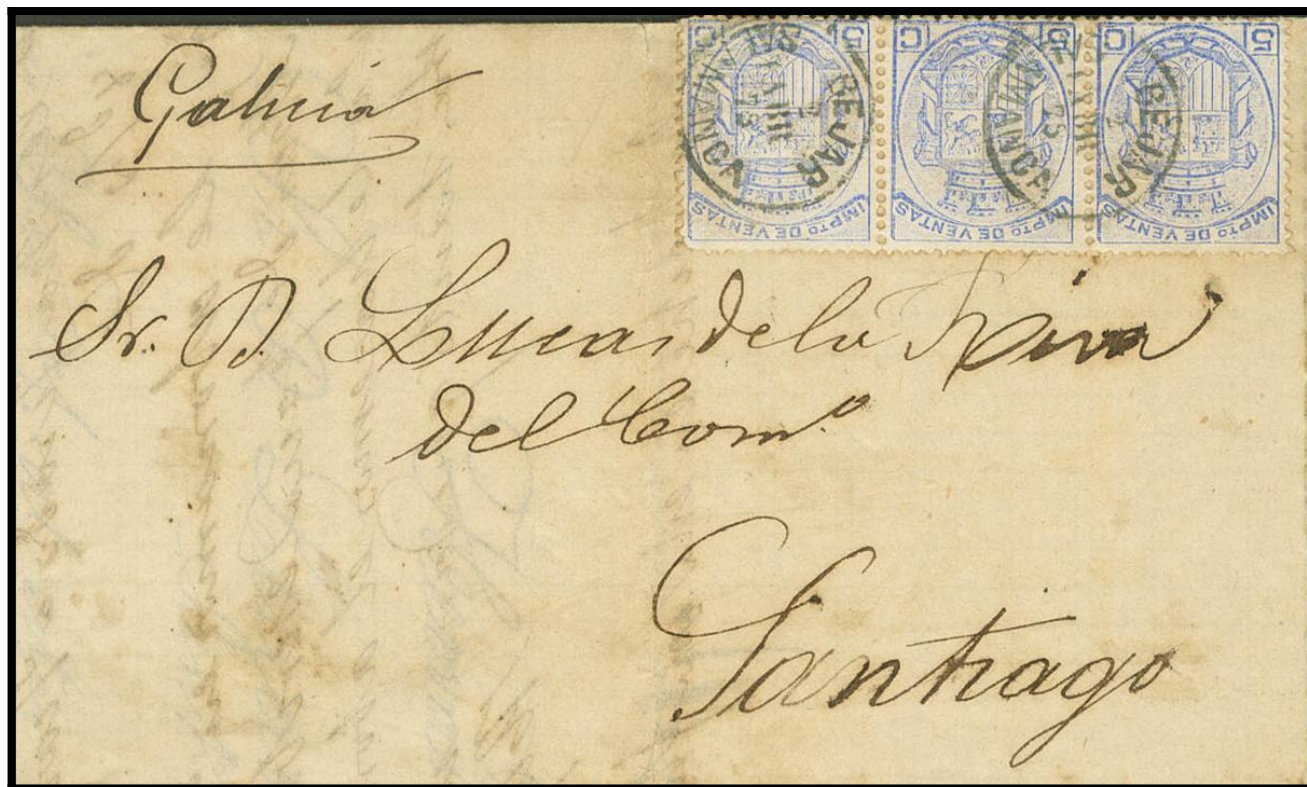 Galicia
5 C
5 C
5 C
IMPTO DE VENTAS
IMPTO DE VENTAS
IMPTO DE VENTAS
BEJAR
SALAMANCA
BEJAR
SALAMANCA
Sr. D. Lucas de la Riva
del Como
Santiago